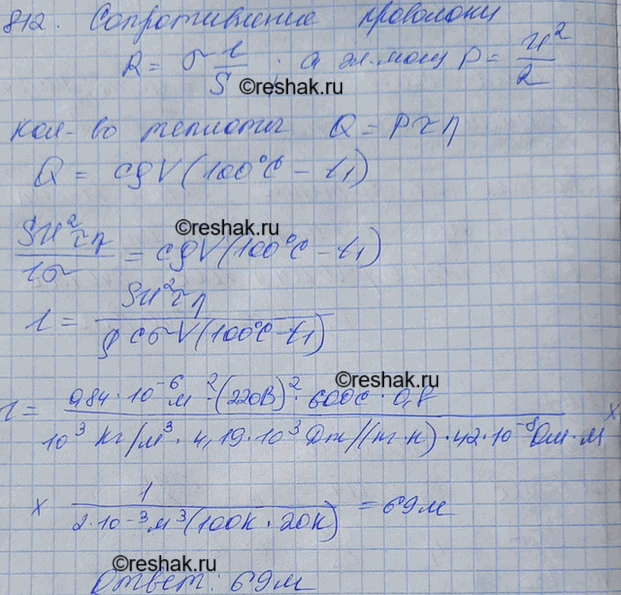 812. Сопротивление проволоки
R = σ l/S ; а эл. мощ P = U²/R
©reshak.ru
кол-во теплоты Q = Pτη
Q = cρV(100°C - t₁)
©reshak.ru
SU²τη/lσ = cρV(100°C - t₁)
l = SU²τη/ρcσV(100°C - t₁)
©reshak.ru
l = 0,84·10⁻⁶м²·(220В)²·600с·0,8/10³ кг/м³·4,19·10³ Дж/(кг·К)·42·10⁻⁸Ом·м ×
× 1/2·10⁻³м³(100К·20К) = 69м
©reshak.ru
Ответ: 69м